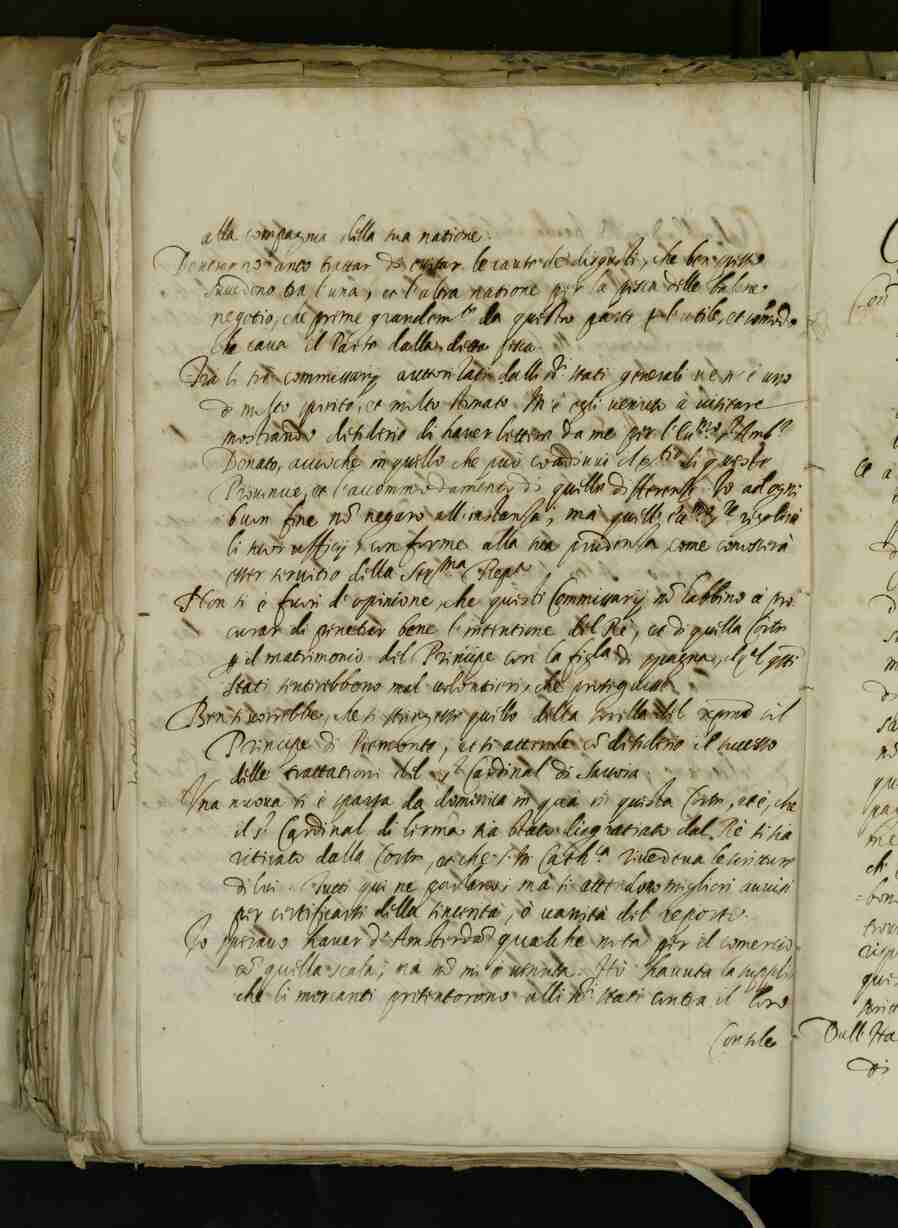 alla compagnia della sua natione.
Doveranno anco trattar di evitar le cause de disgusti, che ben spesso
succedono tra l'una, et l'altra natione per la pesca delle balene
negotio, che preme grandem.te da questa parte per l'utile, et commodo
che cava il Paese dalla detta pesca.
Tra li tre commissarij auttorizati dalli S.ri Stati generali ve n'è uno
di molto spirito, et molto stimato. M'è egli venuto à visitare
mostrando desiderio di haver lettera da me per l'Ecc.mo S.r Amb.r
Donato, accioche in quello che può coadiuvi il di queste
Provincie, et l'accommodamento di quelle differenze. Io ad ogni
buon fine nō negarò all'instanza; mà quell'Ecc.mo S.re regolerà
li suoi ufficij conforme alla sua prudenza come conoscerà
esser servitio della Ser.ma Rep.ca
Non si è fuori d'opinione, che questi Commissarij nō habbino à pro
curar di penetrar bene l'intentione del Rè, et di quella Corte
p il matrimonio del Principe con la figl.a di spagna, il q.al q.sti
Stati sentirebbono mal volontieri, che proseguisse.
Ben si vorrebbe, che si stringesse quello della sorella del col
Principe di Piemonte, et si attende cō desiderio il successo
delle trattationi del s.r Cardinal di Savoia.
Una nuova si è sparsa da dominica in quà in questa Corte, et è, che
il s.r Cardinal di Lerma sia stato disgratiato dal Rè si sia
ritirato dalla Corte, et che S. M. Cath.ca rivedeva le scritture
di lui. Tutti qui ne parlano; mà si attendono migliori avvisi
per certificarsi della sincerità, ò vanità del reporto.
Io speravo haver d'Amsterdam qualche nota per il comercio
cō quella scala; ma nō mi è venuta. Hò havuta la supplica
che li mercanti presentorono alli S.ri Stati contra il loro
Console